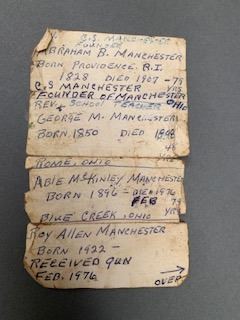 C.S. MANCHESTER
FOUNDER
ABRAHAM B. MANCHESTER
BORN PROVIDENCE. R.I.
1828 DIED 1907 - 79
YRS
C.S MANCHESTER
FOUNDER OF MANCHESTER
OHIO
REV. SCHOOL TEACHER
GEORGE M. MANCHESTER
BORN 1850 DIED
48
ROME, OHIO
ABIE McKINLEY MANCHESTER
BORN 1896 - DIED 1976
FEB 79
YRS
BLUE CREEK, OHIO
ROY ALLEN MANCHESTER
BORN 1922 -
RECEIVED GUN
FEB. 1976
OVER